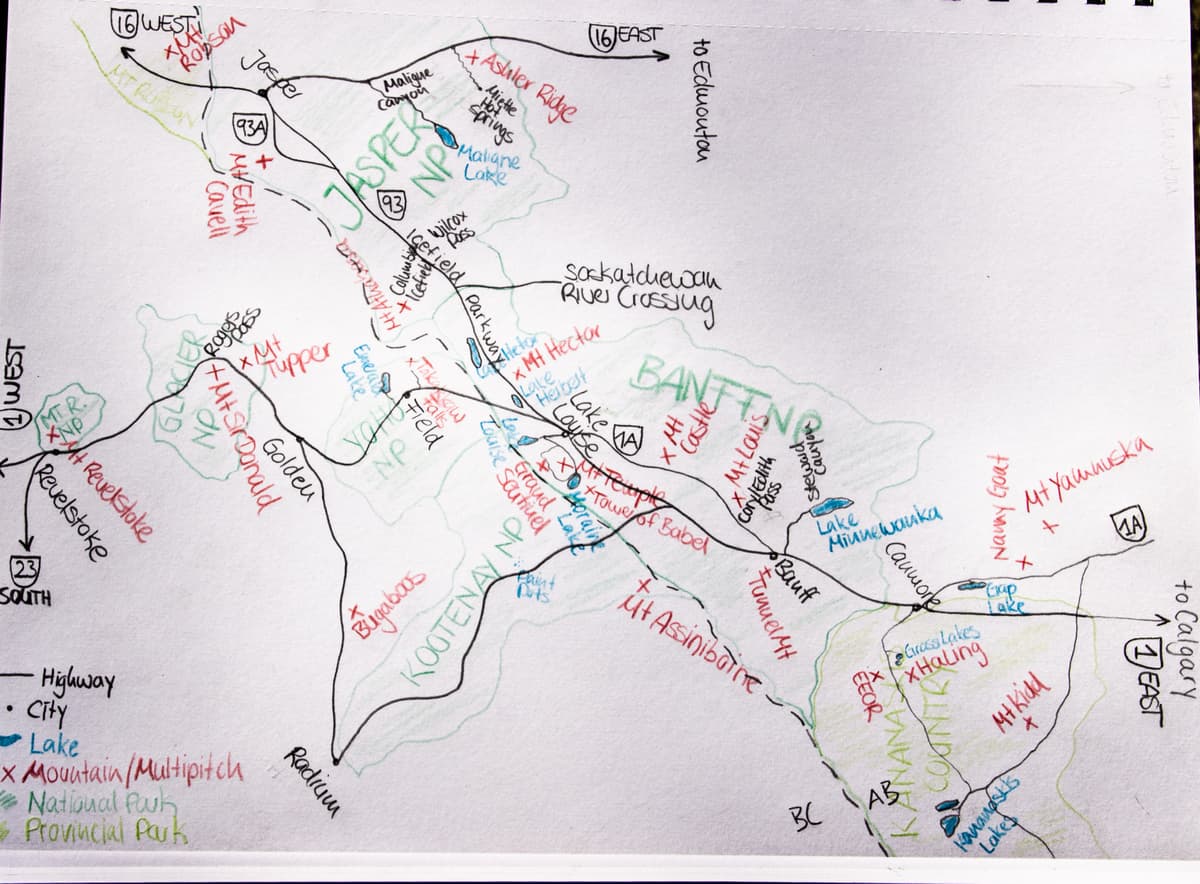 16 WEST
x Mt
Robson
MT ROBSON
Jasper
16 EAST
to Edmonton
+ Ashler Ridge
Miette
Hot
Springs
Maligne
Canyon
Maligne
Lake
93A
+
Mt Edith
Cavell
JASPER
NP
93
Wilcox
Pass
Icefield
Parkway
Columbia
Icefield
x
Mt Athabasca
Saskatchewan
River Crossing
1 WEST
MT. R.
NP
x Mt Revelstoke
Revelstoke
23
SOUTH
GLACIER
NP
Rogers
Pass
x Mt
Tupper
+ Mt Sir Donald
Golden
Emerald
Lake
YOHO
NP
Field
x Takakkaw
Falls
Hector
Lake
x Mt Hector
Lake
Herbert
Lake
Louise
Lake
Louise
1A
BANFF NP
x Mt
Castle
x Mt Louis
Cory/Edith
Pass
Stewart
Canyon
Lake
Minnewanka
x
Grand
Sentinel
x Mt Temple
x Tower of Babel
Moraine
Lake
Paint
Pots
KOOTENAY NP
x
Bugaboos
Radium
x
Mt Assiniboine
Banff
+ Tunnel Mt
Canmore
Nanny Goat
x
Mt Yamnuska
x
1A
Gap
Lake
to Calgary
1 EAST
Grassi Lakes
x Haling
x
EEOR
Mt Kidd
x
KANANASKIS
COUNTRY
Kananaskis
Lakes
BC
AB
— Highway
• City
Lake
x Mountain/Multipitch
National Park
Provincial Park